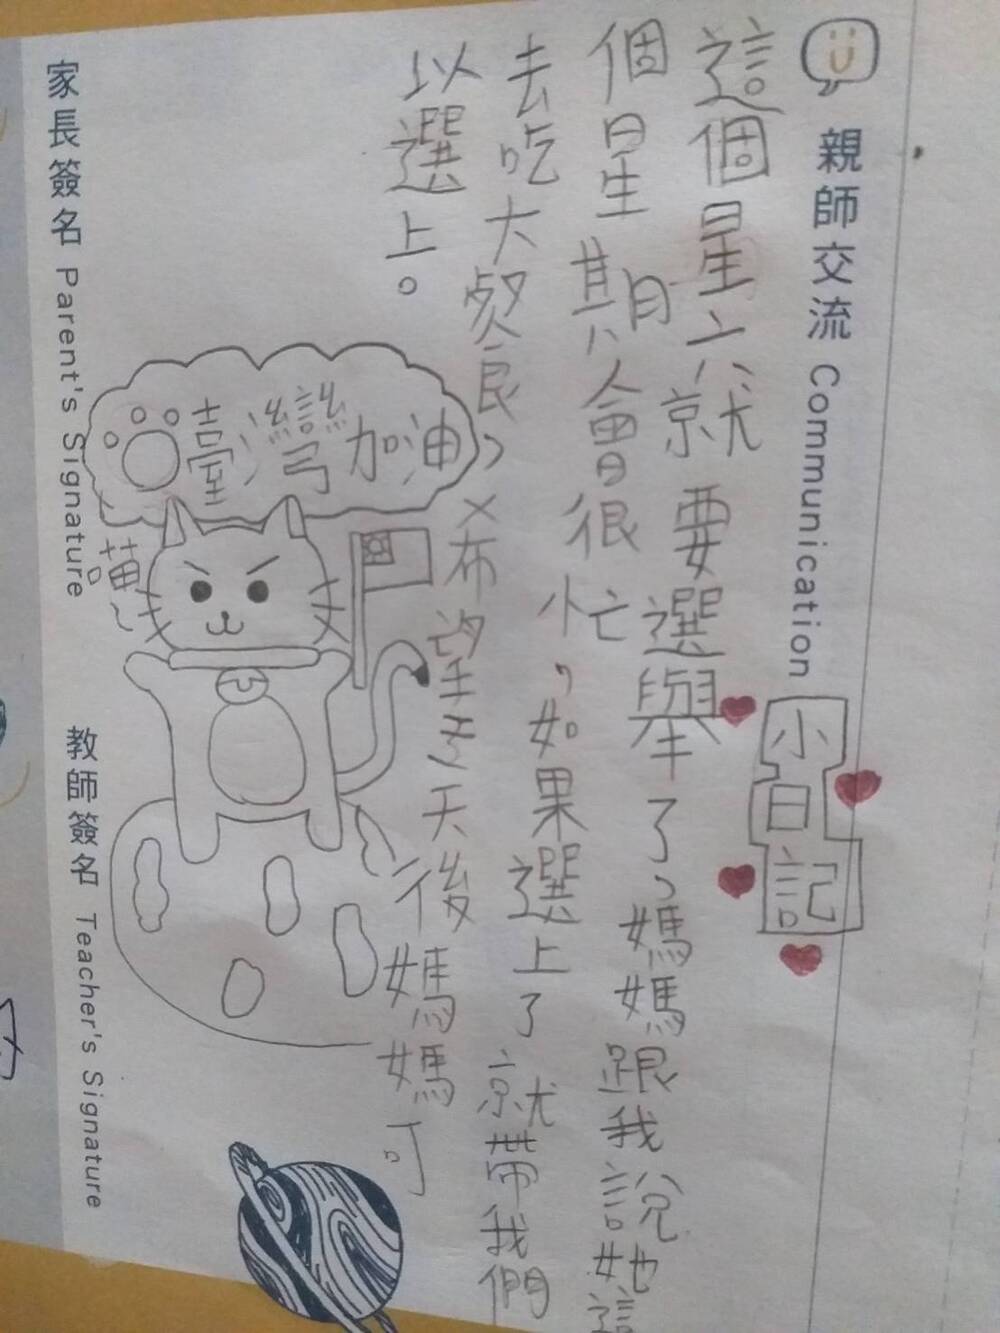 親師交流 Communication
小日記
這個星六就要選舉了，媽媽跟我說她這
個星期會很忙，如果選上了就帶我們
去吃大餐，希望天後媽媽可
以選上。
臺灣加油
喵~
家長簽名 Parent's Signature
教師簽名 Teacher's Signature